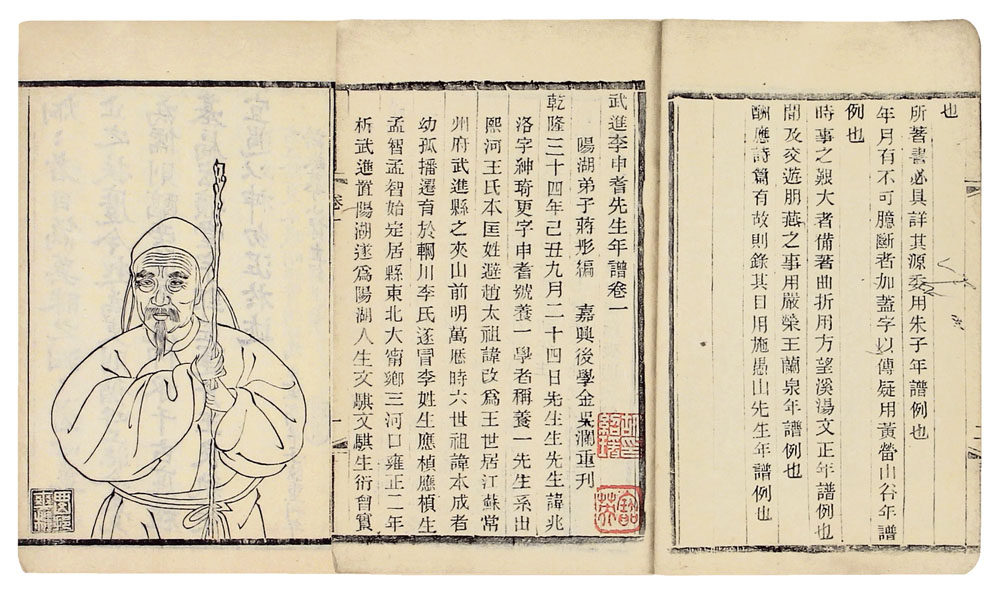 也
所著書必具詳其源委用朱子年譜例也
年月有不可臆斷者加蓋字以傳疑用黃㽦山谷年譜
例也
時事之艱大者備著曲折用方望溪湯文正年譜例也
閒及交遊朋燕之事用嚴榮王蘭泉年譜例也
酬應詩篇有故則錄其目用施愚山先生年譜例也
武進李申耆先生年譜卷一
陽湖弟子蔣彤編　嘉興後學金吳瀾重刊
乾隆三十四年己丑九月二十四日先生生先生諱兆
洛字紳琦更字申耆號養一學者稱養一先生系出
熙河王氏本匡姓避趙太祖諱改爲王世居江蘇常
州府武進縣之夾山前明萬厯時六世祖諱本成者
幼孤播遷育於輞川李氏遂冒李姓生應楨應楨生
孟智孟智始定居縣東北大甯鄉三河口雍正二年
析武進置陽湖遂爲陽湖人生文騏文騏生衍曾實
卷一